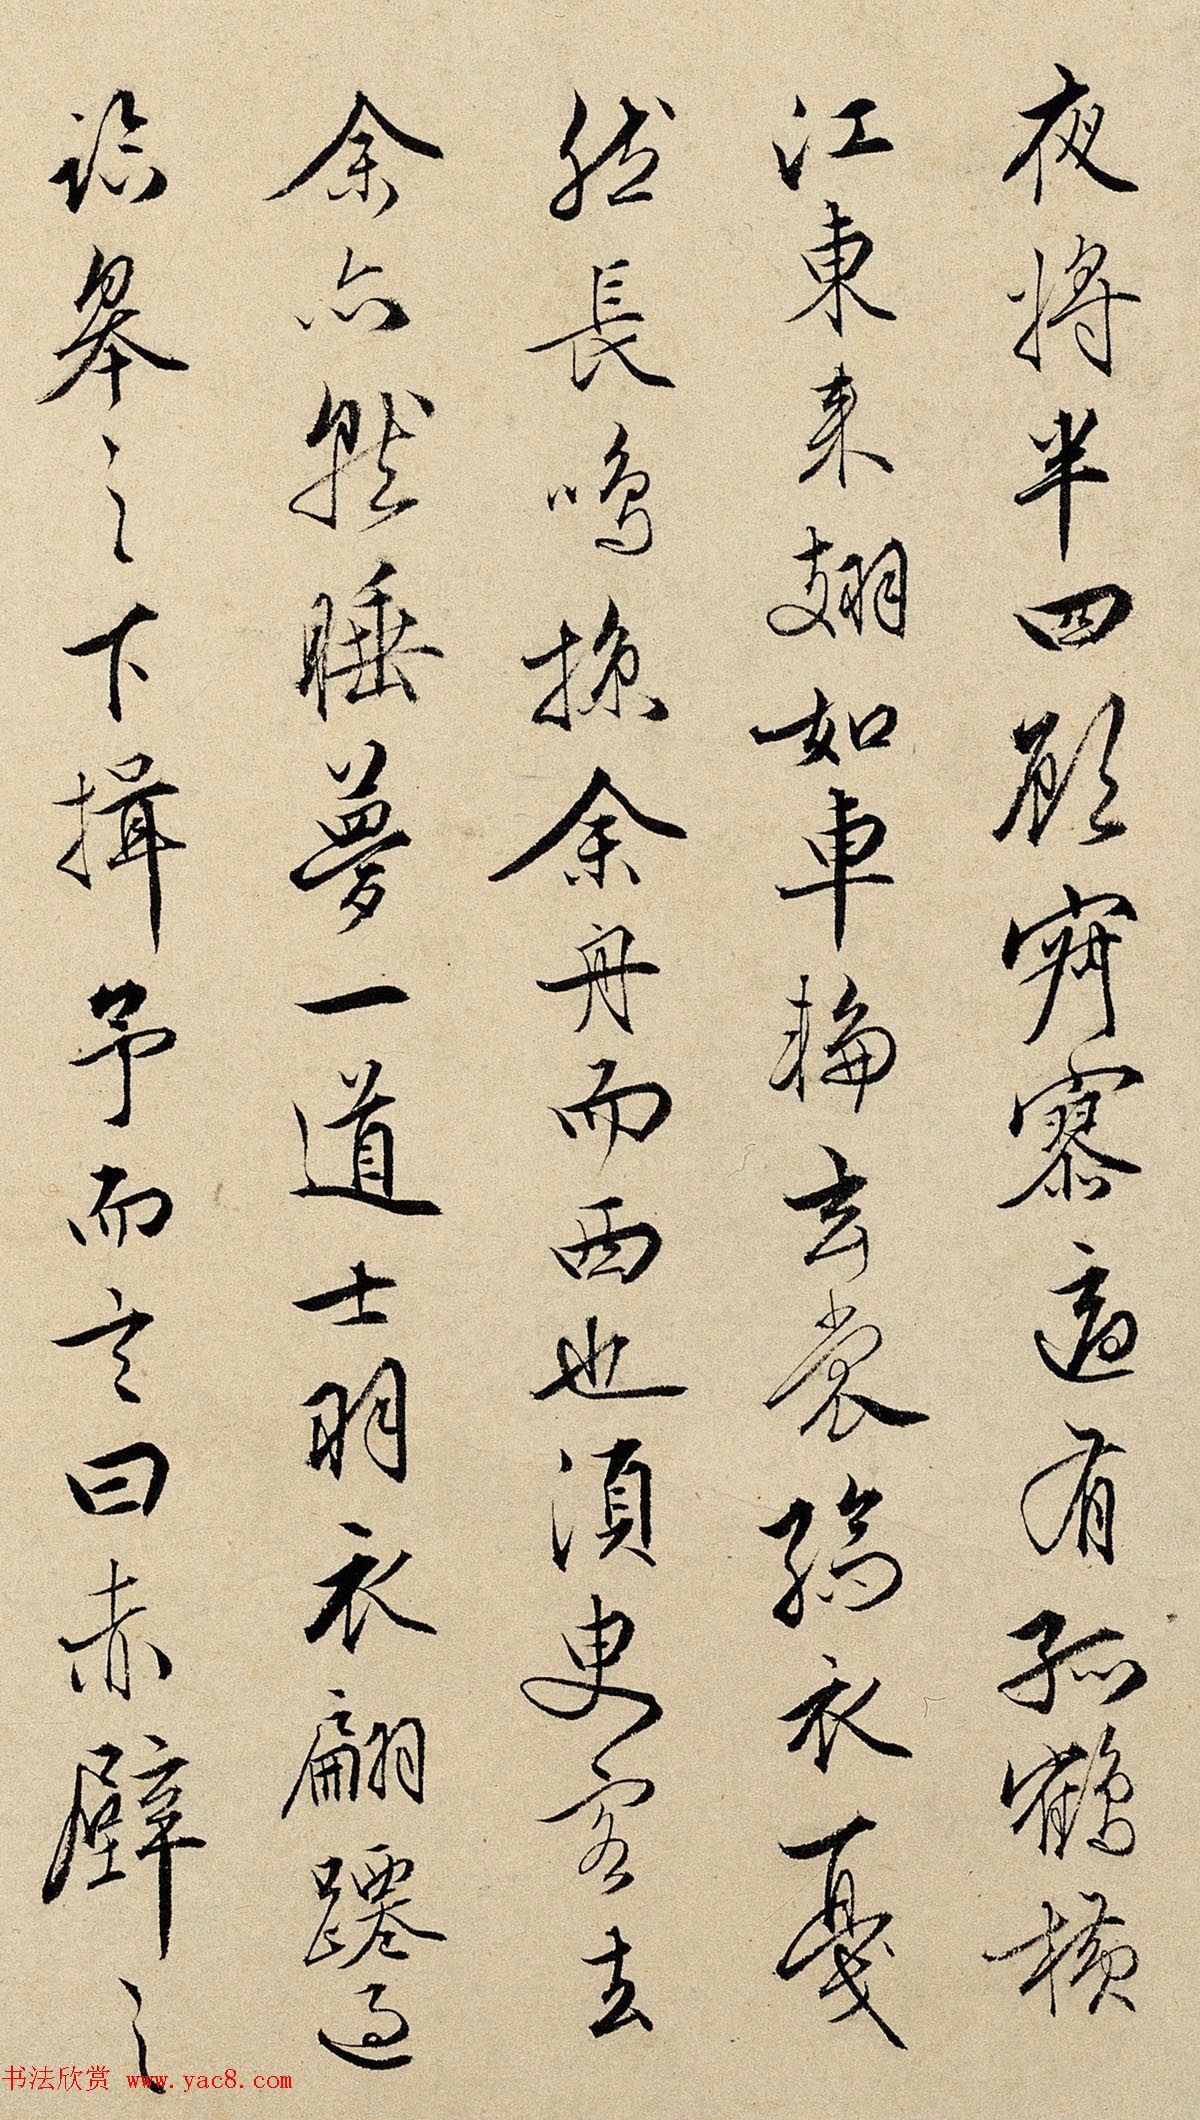 夜將半四顧寂寥適有孤鶴橫
江東来翅如車輪玄裳縞衣戛
然長鳴掠余舟而西也須臾客去
余亦就睡夢一道士羽衣翩躚過
臨皋之下揖予而言曰赤壁之
书法欣赏 www.yac8.com